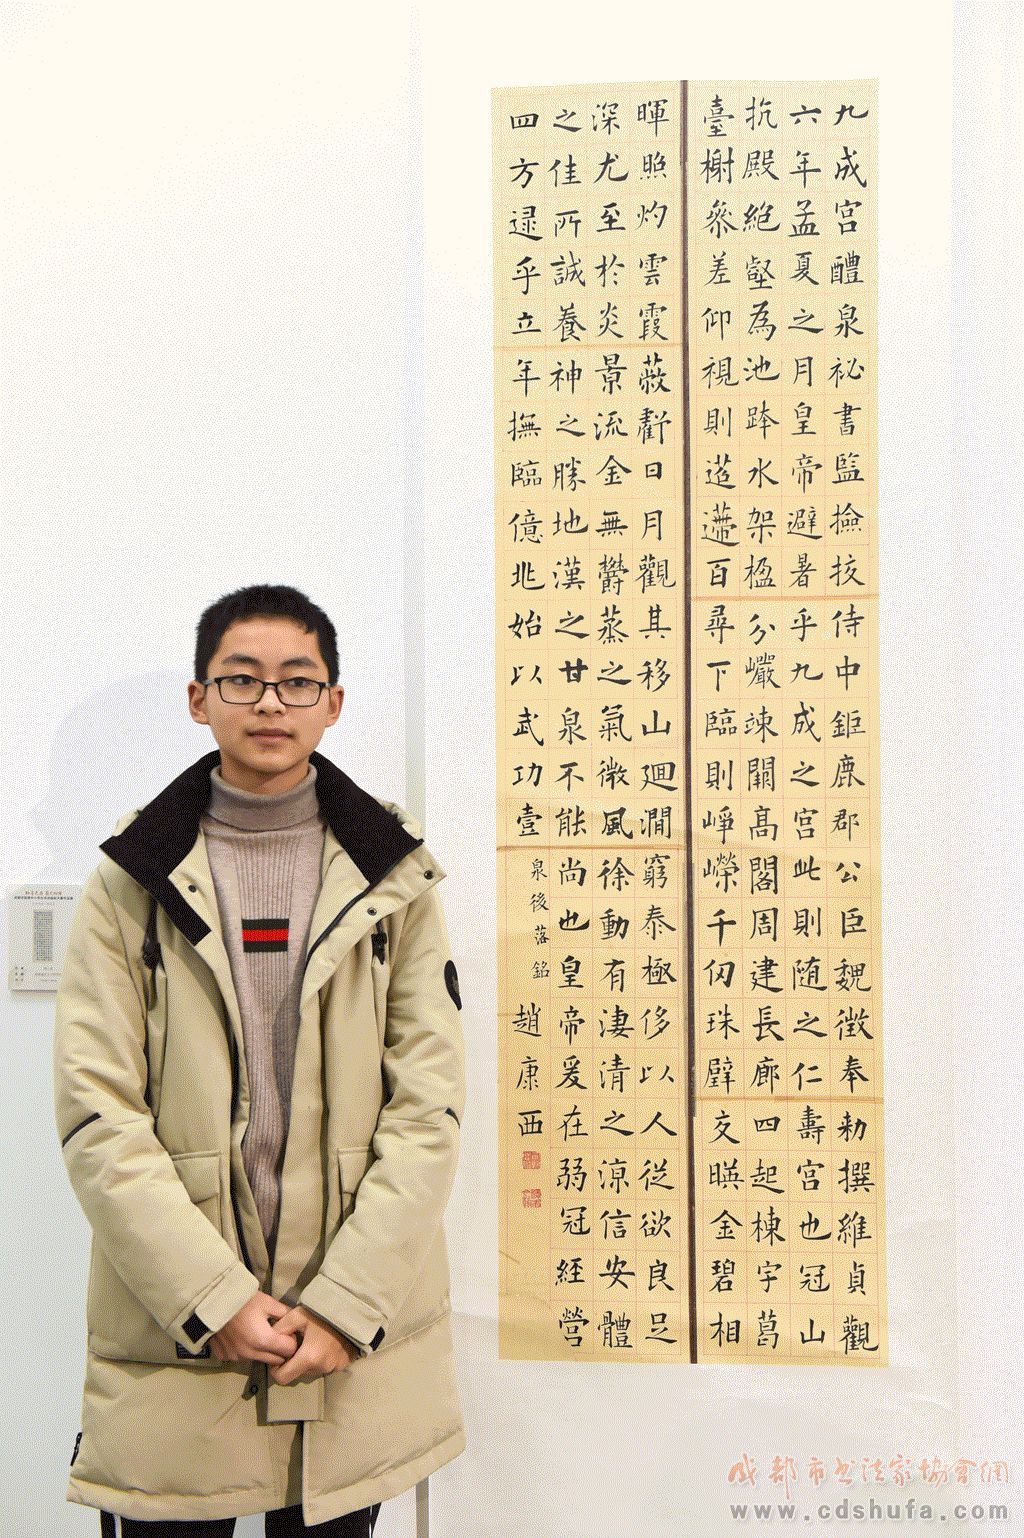 九成宮醴泉祕書監撿挍侍中鉅鹿郡公臣魏徵奉勑撰維貞觀
六年孟夏之月皇帝避暑乎九成之宮此則随之仁壽宮也冠山
抗殿絶壑為池跨水架楹分巖竦闕髙閣周建長廊四起棟宇葛
臺榭叅差仰視則迢遰百尋下臨則崢嶸千仞珠壁交暎金碧相
暉照灼雲霞蔽虧日月觀其移山迴澗窮泰極侈以人従欲良足
深尤至於炎景流金無欝蒸之氣微風徐動有淒清之涼信安體
之佳所誠養神之勝地漢之甘泉不能尚也皇帝爰在弱冠經營
四方逮乎立年撫臨億兆始以武功壹
泉後落銘
趙康西
成都市书法家協會網
www.cdshufa.com